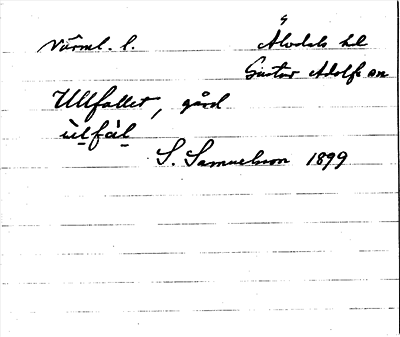 Värml. l. Älvdals hd
Gustav Adolfs sn
Ullfallet, gård
ùlfàl
S. Samuelsson 1899